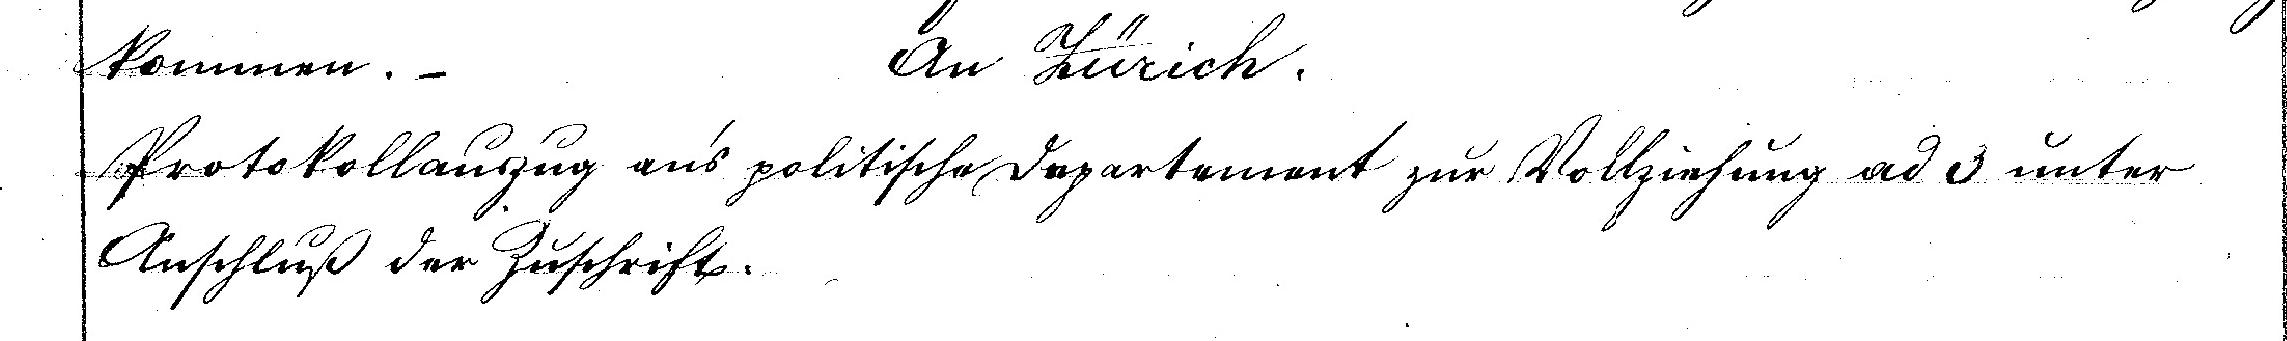 kommen. – An Zürich.
Protokollauszug an's politische Departement zur Vollziehung ad 3 unter
Anschluß der Zuschrift.